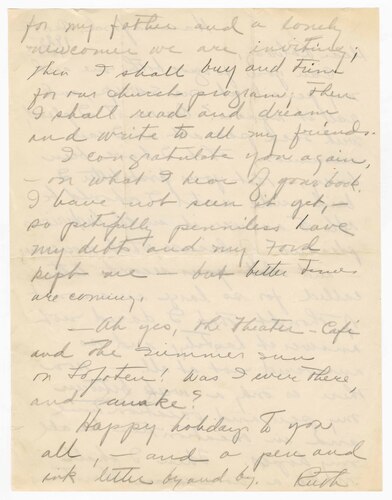 for my father and a lonely
newcomer we are inviting;
then I shall buy and trim
for our church program; then
I shall read and dream
and write to all my friends.
I congratulate you again,
– on what I hear of your book.
I have not seen it yet, –
so pitifully penniless have
my debt and my Ford
kept me – but better times
are coming.
– Ah yes, the theater-Café
and the summer sun
on Lofoten! Was I ever there,
and awake?
Happy holidays to you
all, – and a pen and
ink letter by and by. Ruth